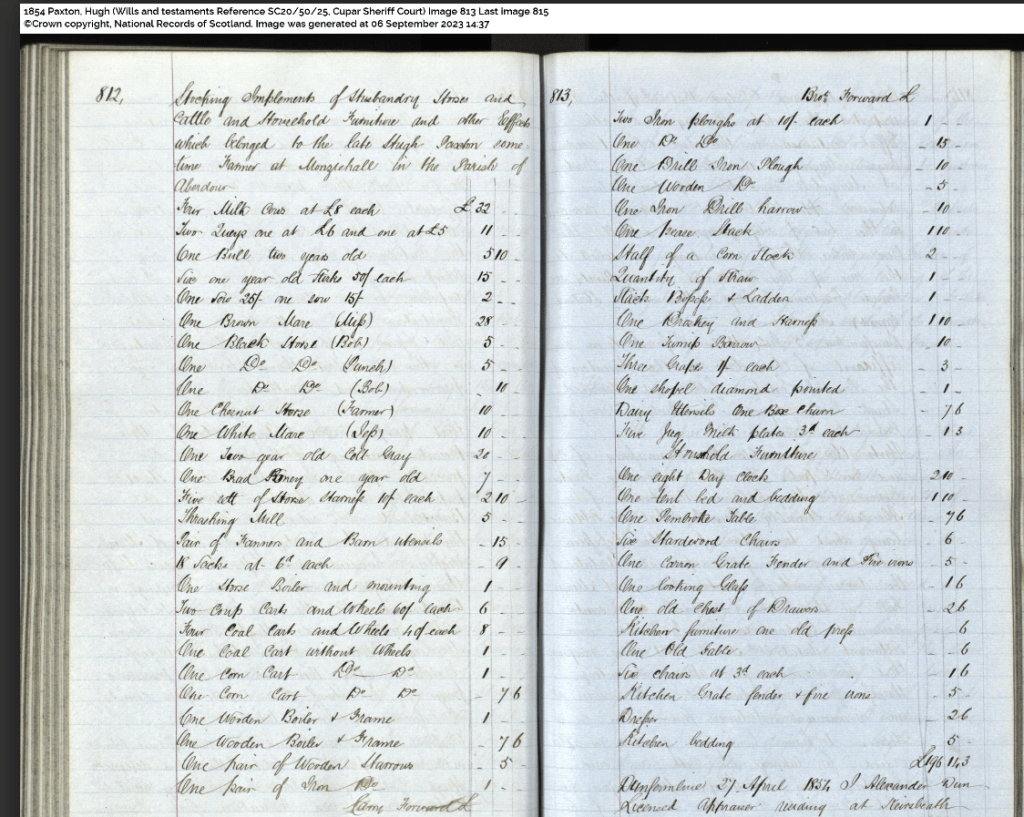 1854 Paxton, Hugh (Wills and testaments Reference SC20/50/25, Cupar Sheriff Court) Image 813 Last image 815
©Crown copyright, National Records of Scotland. Image was generated at 06 September 2023 14:37
812,
Stocking Implements of Husbandry Horses and
Cattle and Household Furniture and other Effects
which belonged to the late Hugh Paxton some
time Farmer at Mongiehall in the Parish of
Aberdour
Four Milk Cows at £8 each £ 32 - -
Two Queys one at £6 and one at £5 11 - -
One Bull two years old 5 10 -
Six one year old Stirks 50/ each 15 - -
One Sow 25/ one sow 15/ 2 - -
One Brown Mare 28 - -
One Black Horse (Bob) 5 - -
One Do Do (Punch) 5 - -
One Do Do (Bob) - 10 -
One Chesnut Horse (Farmer) 10 - -
One White Mare 10 - -
One Two year old Colt Gray 20 - -
One Poney one year old 7 - -
Five sett of Horse Harness 10/ each 2 10 -
Thrashing Mill 5 - -
Pair of Fanners and Barn utensils - 15 -
18 Sacks at 6d each - 9 -
One Horse Boiler and mounting 1 - -
Two Coup Carts and Wheels 60/ each 6 - -
Four Coal Carts and Wheels 40/ each 8 - -
One Coal Cart without Wheels 1 - -
One Corn Cart Do Do 1 - -
One Corn Cart Do Do - 7 6
One Wooden Boiler & Frame 1 - -
One Wooden Boiler & Frame - 7 6
One pair of Wooden Harrows - 5 -
One pair of Iron Do 1 - -
Carry Forward £
813,
Brot Forward £
Two Iron ploughs at 10/ each 1 - -
One Do Do - 15 -
One Drill Iron Plough - 10 -
One Wooden Do - 5 -
One Iron Drill harrow - 10 -
One Pease Stack 1 10 -
Half of a Corn Stack 2 - -
Quantity of Straw 1 - -
Stack & Ladder 1 - -
One Droskey and Harness 1 10 -
One Turnip Barrow - 10 -
Three Grapes 1/ each - 3 -
One shovel diamond pointed - 1 -
Dairy Utensils One Box Churn - 7 6
Five Milk plates 3d each - 1 3
Household Furniture
One eight Day clock 2 10 -
One tent bed and bedding 1 10 -
One Pembroke Table - 7 6
Six Hardwood Chairs - 6 -
One Carron Grate Fender and Fire irons - 5 -
One looking Glass - 1 6
One old Chest of Drawers - 2 6
Kitchen furniture one old press - - 6
One Old Table - - 6
Six chairs at 3d each - 1 6
Kitchen Grate fender & fire irons - 5 -
Dresser - 2 6
Kitchen bedding - 5 -
£196 14 3
Dunfermline 27 April 1854 I Alexander
Licensed Appraiser residing at